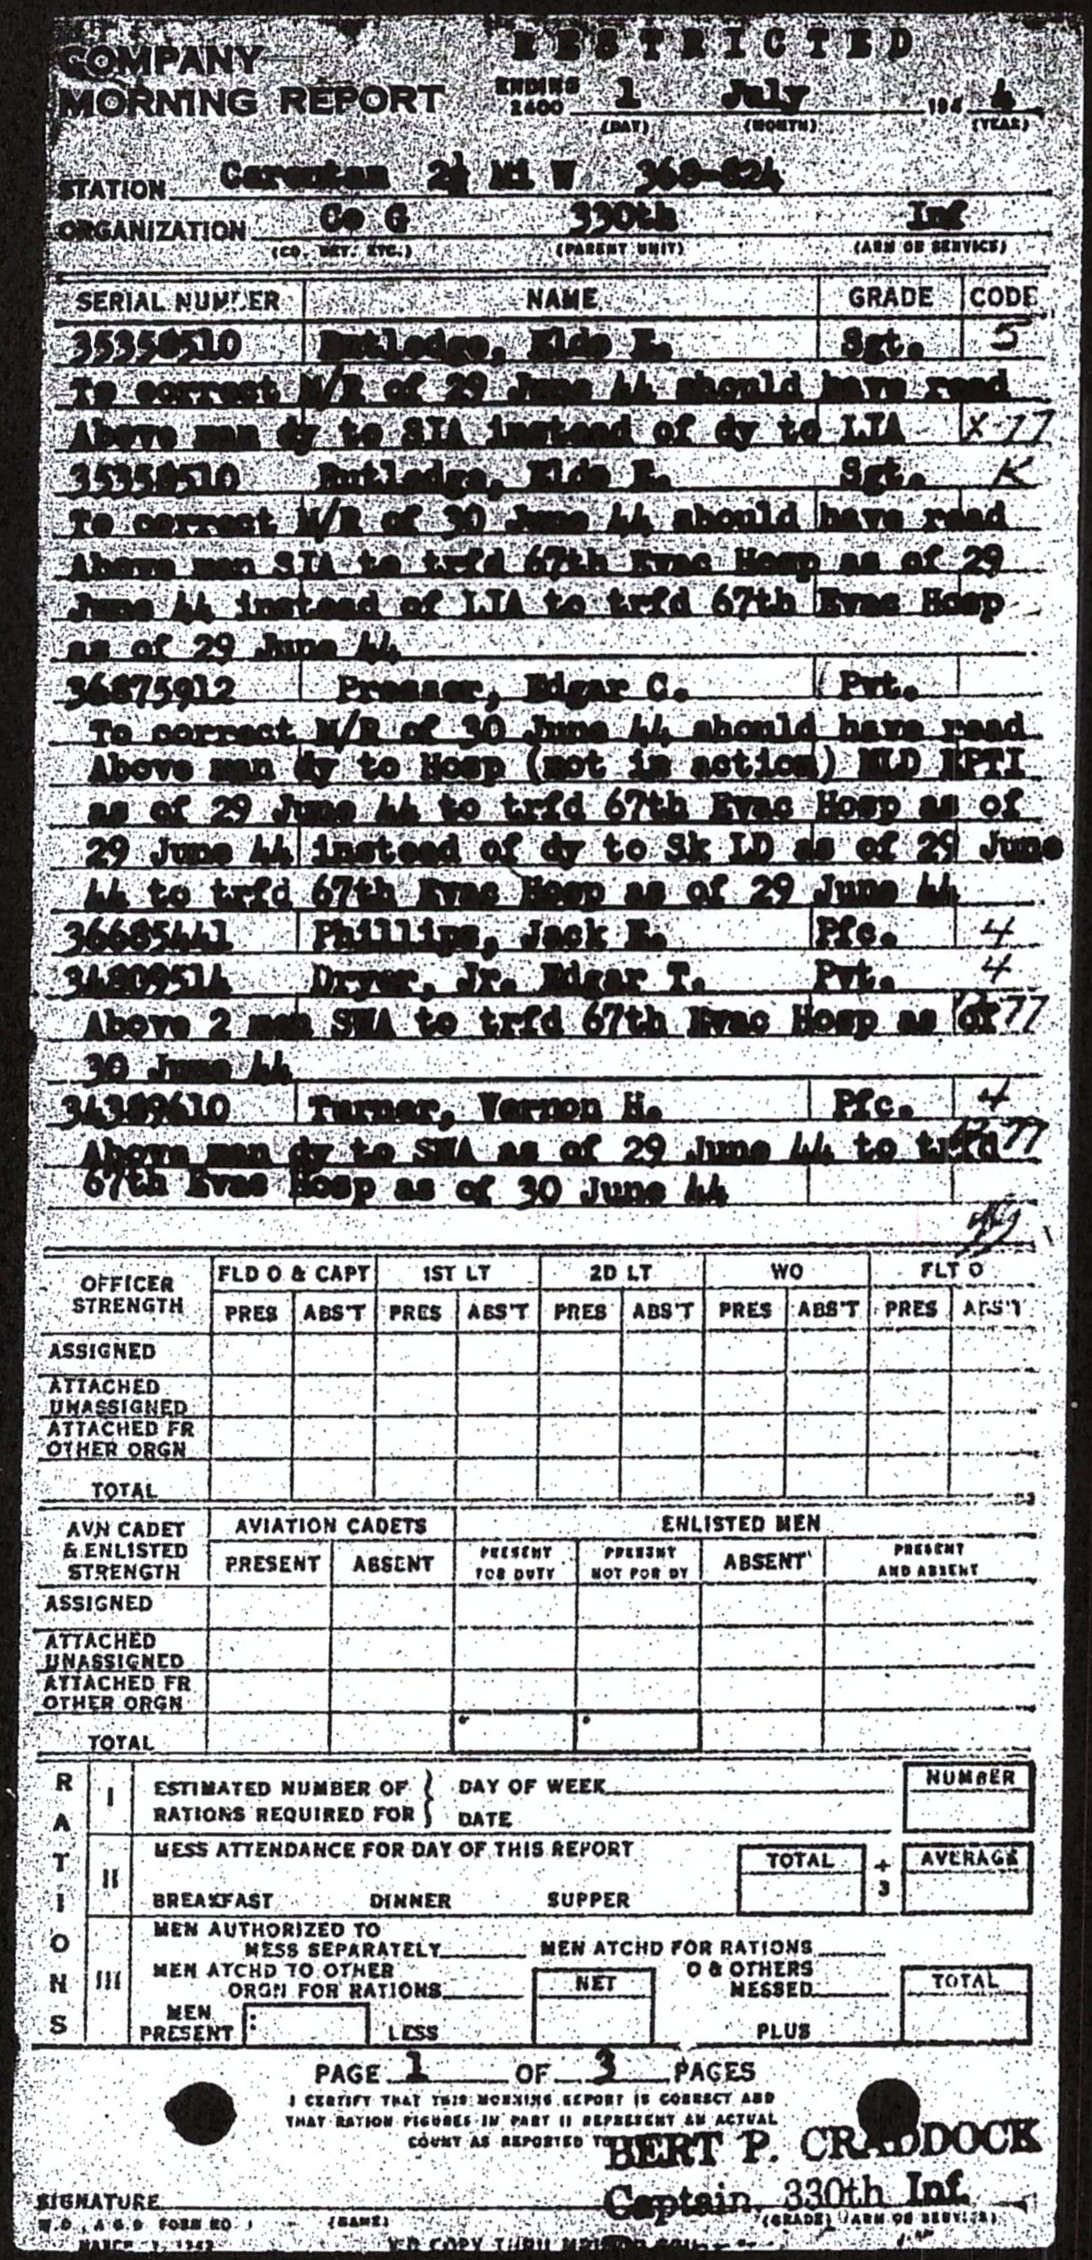 RESTRICTED
COMPANY
MORNING REPORT ENDING 2400 1 July 194 4
(DAY) (MONTH) (YEAR)
STATION Carentan 2½ Mi W 368-824
ORGANIZATION Co G 330th Inf
(CO. DET. ETC.) (PARENT UNIT) (ARM OR SERVICE)
SERIAL NUMBER NAME GRADE CODE
35358510 Rutledge, Sgt. 5
To correct M/R of 29 June 44 should have read
Above man dy to SIA instead of dy to LIA X-77
35358510 Rutledge, Sgt. K
To correct M/R of 30 June 44 should have read
Above man SIA to trfd 67th Evac Hosp as of 29
June 44 instead of LIA to trfd 67th Evac Hosp
as of 29 June 44
36875912 Edgar C. Pvt.
To correct M/R of 30 June 44 should have read
Above man dy to Hosp (not in action) NLD EPTI
as of 29 June 44 to trfd 67th Evac Hosp as of
29 June 44 instead of dy to Sk LD as of 29 June
44 to trfd 67th Evac Hosp as of 29 June 44
36685441 Phillips, Jack E. Pfc. 4
34809514 Dryer, Jr. Edgar T. Pvt. 4
Above 2 men SWA to trfd 67th Evac Hosp as of 77
30 June 44
34389610 Turner, Vernon H. Pfc. 4
Above man dy to SWA as of 29 June 44 to trfd 77
67th Evac Hosp as of 30 June 44
OFFICER STRENGTH FLD O & CAPT 1ST LT 2D LT WO FLT O
PRES ABS'T PRES ABS'T PRES ABS'T PRES ABS'T PRES ABS'T
ASSIGNED
ATTACHED
UNASSIGNED
ATTACHED FR
OTHER ORGN
TOTAL
AVN CADET & ENLISTED STRENGTH AVIATION CADETS ENLISTED MEN
PRESENT ABSENT PRESENT FOR DUTY PRESENT NOT FOR DY ABSENT PRESENT AND ABSENT
ASSIGNED
ATTACHED
UNASSIGNED
ATTACHED FR
OTHER ORGN
TOTAL
RATIONS
I ESTIMATED NUMBER OF DAY OF WEEK NUMBER
RATIONS REQUIRED FOR DATE
II MESS ATTENDANCE FOR DAY OF THIS REPORT TOTAL ÷ 3 AVERAGE
BREAKFAST DINNER SUPPER
III MEN AUTHORIZED TO
MESS SEPARATELY MEN ATCHD FOR RATIONS
MEN ATCHD TO OTHER O & OTHERS
ORGN FOR RATIONS NET MESSED TOTAL
MEN
PRESENT LESS PLUS
PAGE 1 OF 3 PAGES
I CERTIFY THAT THIS MORNING REPORT IS CORRECT AND
THAT RATION FIGURES IN PART II REPRESENT AN ACTUAL
COUNT AS REPORTED TO
BERT P. CRADDOCK
Captain, 330th Inf.
SIGNATURE
W.D., A.G.O. FORM NO. 1 (NAME) (GRADE) (ARM OR SERVICE)
MARCH 1, 1943